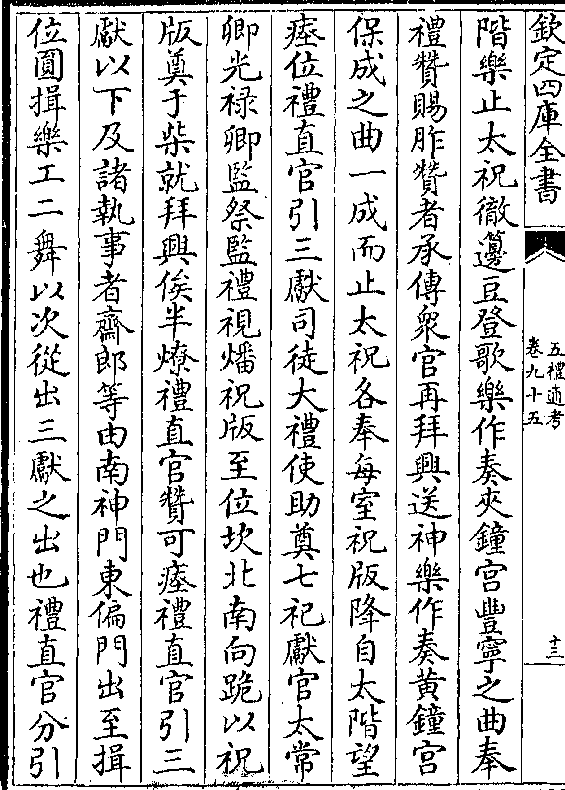 欽定四庫全書
五禮通考
卷九十五
十三
階樂止太祝徹籩豆登歌樂作奏夾鐘宫豐寧之曲奉
禮贊賜胙贊者承傳衆官再拜興送神樂作奏黄鐘宫
保成之曲一成而止太祝各奉每室祝版降自太階望
瘞位禮直官引三獻司徒大禮使助奠七祀獻官太常
卿光禄卿監祭監禮視燔祝版至位坎北南向跪以祝
版奠于柴就拜興俟半燎禮直官贊可瘞禮直官引三
獻以下及諸執事者齋郎等由南神門東偏門出至揖
位圓揖樂工二舞以次從出三獻之出也禮直官分引